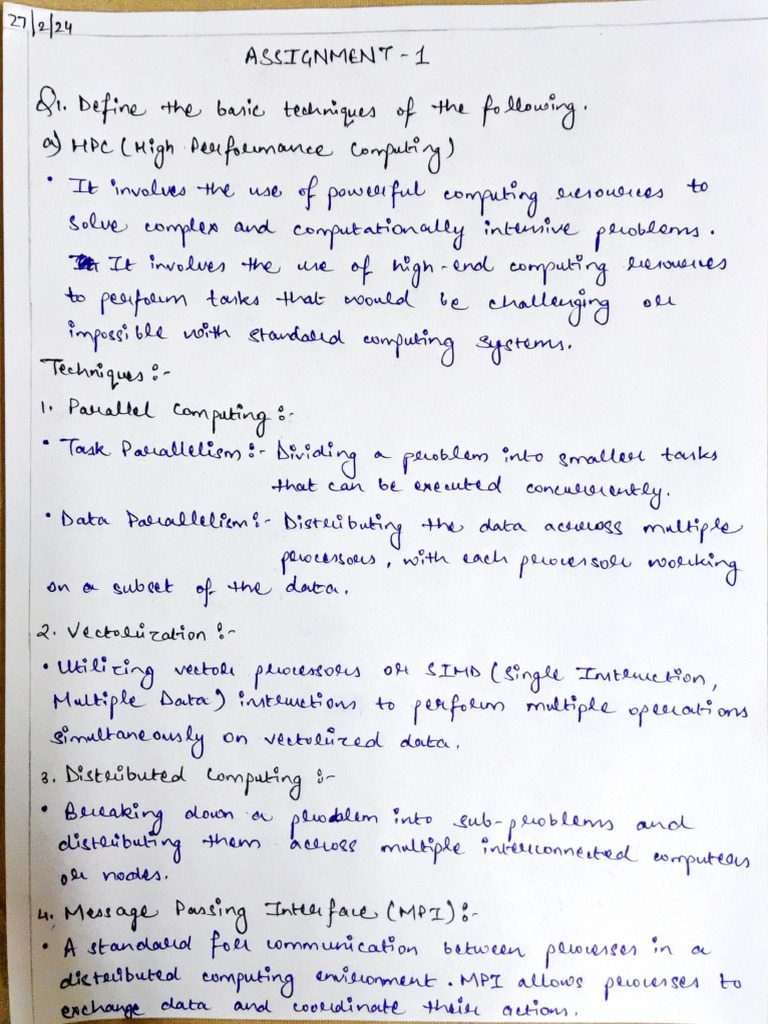 27/2/24
ASSIGNMENT - 1
Q1. Define the basic techniques of the following.
a) HPC (High Performance Computing)
• It involves the use of powerful computing resources to
solve complex and computationally intensive problems.
It involves the use of high-end computing resources
to perform tasks that would be challenging or
impossible with standard computing systems.
Techniques :-
1. Parallel Computing :-
• Task Parallelism :- Dividing a problem into smaller tasks
that can be executed concurrently.
• Data Parallelism :- Distributing the data across multiple
processors, with each processor working
on a subset of the data.
2. Vectorization :-
• Utilizing vector processors or SIMD (Single Instruction,
Multiple Data) instructions to perform multiple operations
simultaneously on vectorized data.
3. Distributed Computing :-
• Breaking down a problem into sub-problems and
distributing them across multiple interconnected computers
or nodes.
4. Message Passing Interface (MPI) :-
• A standard for communication between processes in a
distributed computing environment. MPI allows processes to
exchange data and coordinate their actions.